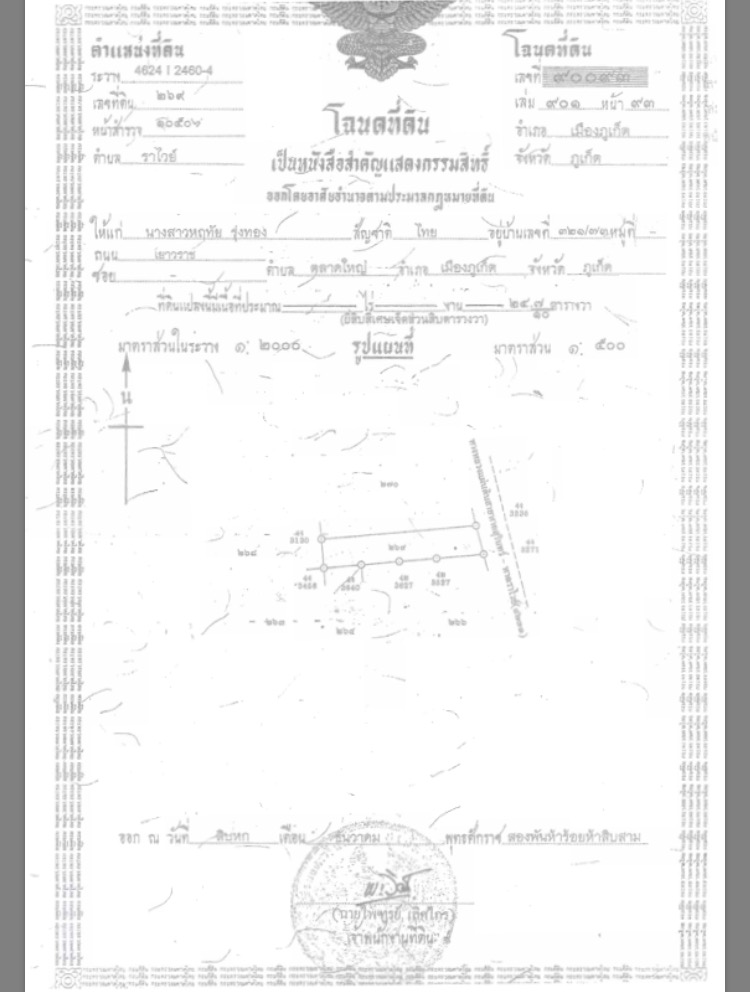 ตำแหน่งที่ดิน
โฉนดที่ดิน
ระวาง 4624 I 2460-4
เลขที่ ๙๐๐๙๓
เลขที่ดิน ๒๖๙
เล่ม ๙๐๑ หน้า ๙๓
หน้าสำรวจ
อำเภอ เมืองภูเก็ต
ตำบล ราไวย์
จังหวัด ภูเก็ต
โฉนดที่ดิน
เป็นหนังสือสำคัญแสดงกรรมสิทธิ์
ออกโดยอาศัยอำนาจตามประมวลกฎหมายที่ดิน
ให้แก่ นางสาวหฤทัย รุ่งทอง สัญชาติ ไทย อยู่บ้านเลขที่ ๓๒๑/๗๑ หมู่ที่ -
ถนน เยาวราช
ซอย - ตำบล ตลาดใหญ่ อำเภอ เมืองภูเก็ต จังหวัด ภูเก็ต
ที่ดินแปลงนี้มีเนื้อที่ประมาณ ไร่ งาน ๒๔ ๗/๑๐ ตารางวา
มาตราส่วนในระวาง ๑: ๒๐๐๐
รูปแผนที่
มาตราส่วน ๑: ๕๐๐
น
๒๗๐
๒๖๘
๒๖๙
๒๖๓
๒๖๔
๒๖๖
ออก ณ วันที่ สิบหก เดือน ธันวาคม พุทธศักราช สองพันห้าร้อยห้าสิบสาม
(นายไพฑูรย์ เลิศไกร)
เจ้าพนักงานที่ดิน